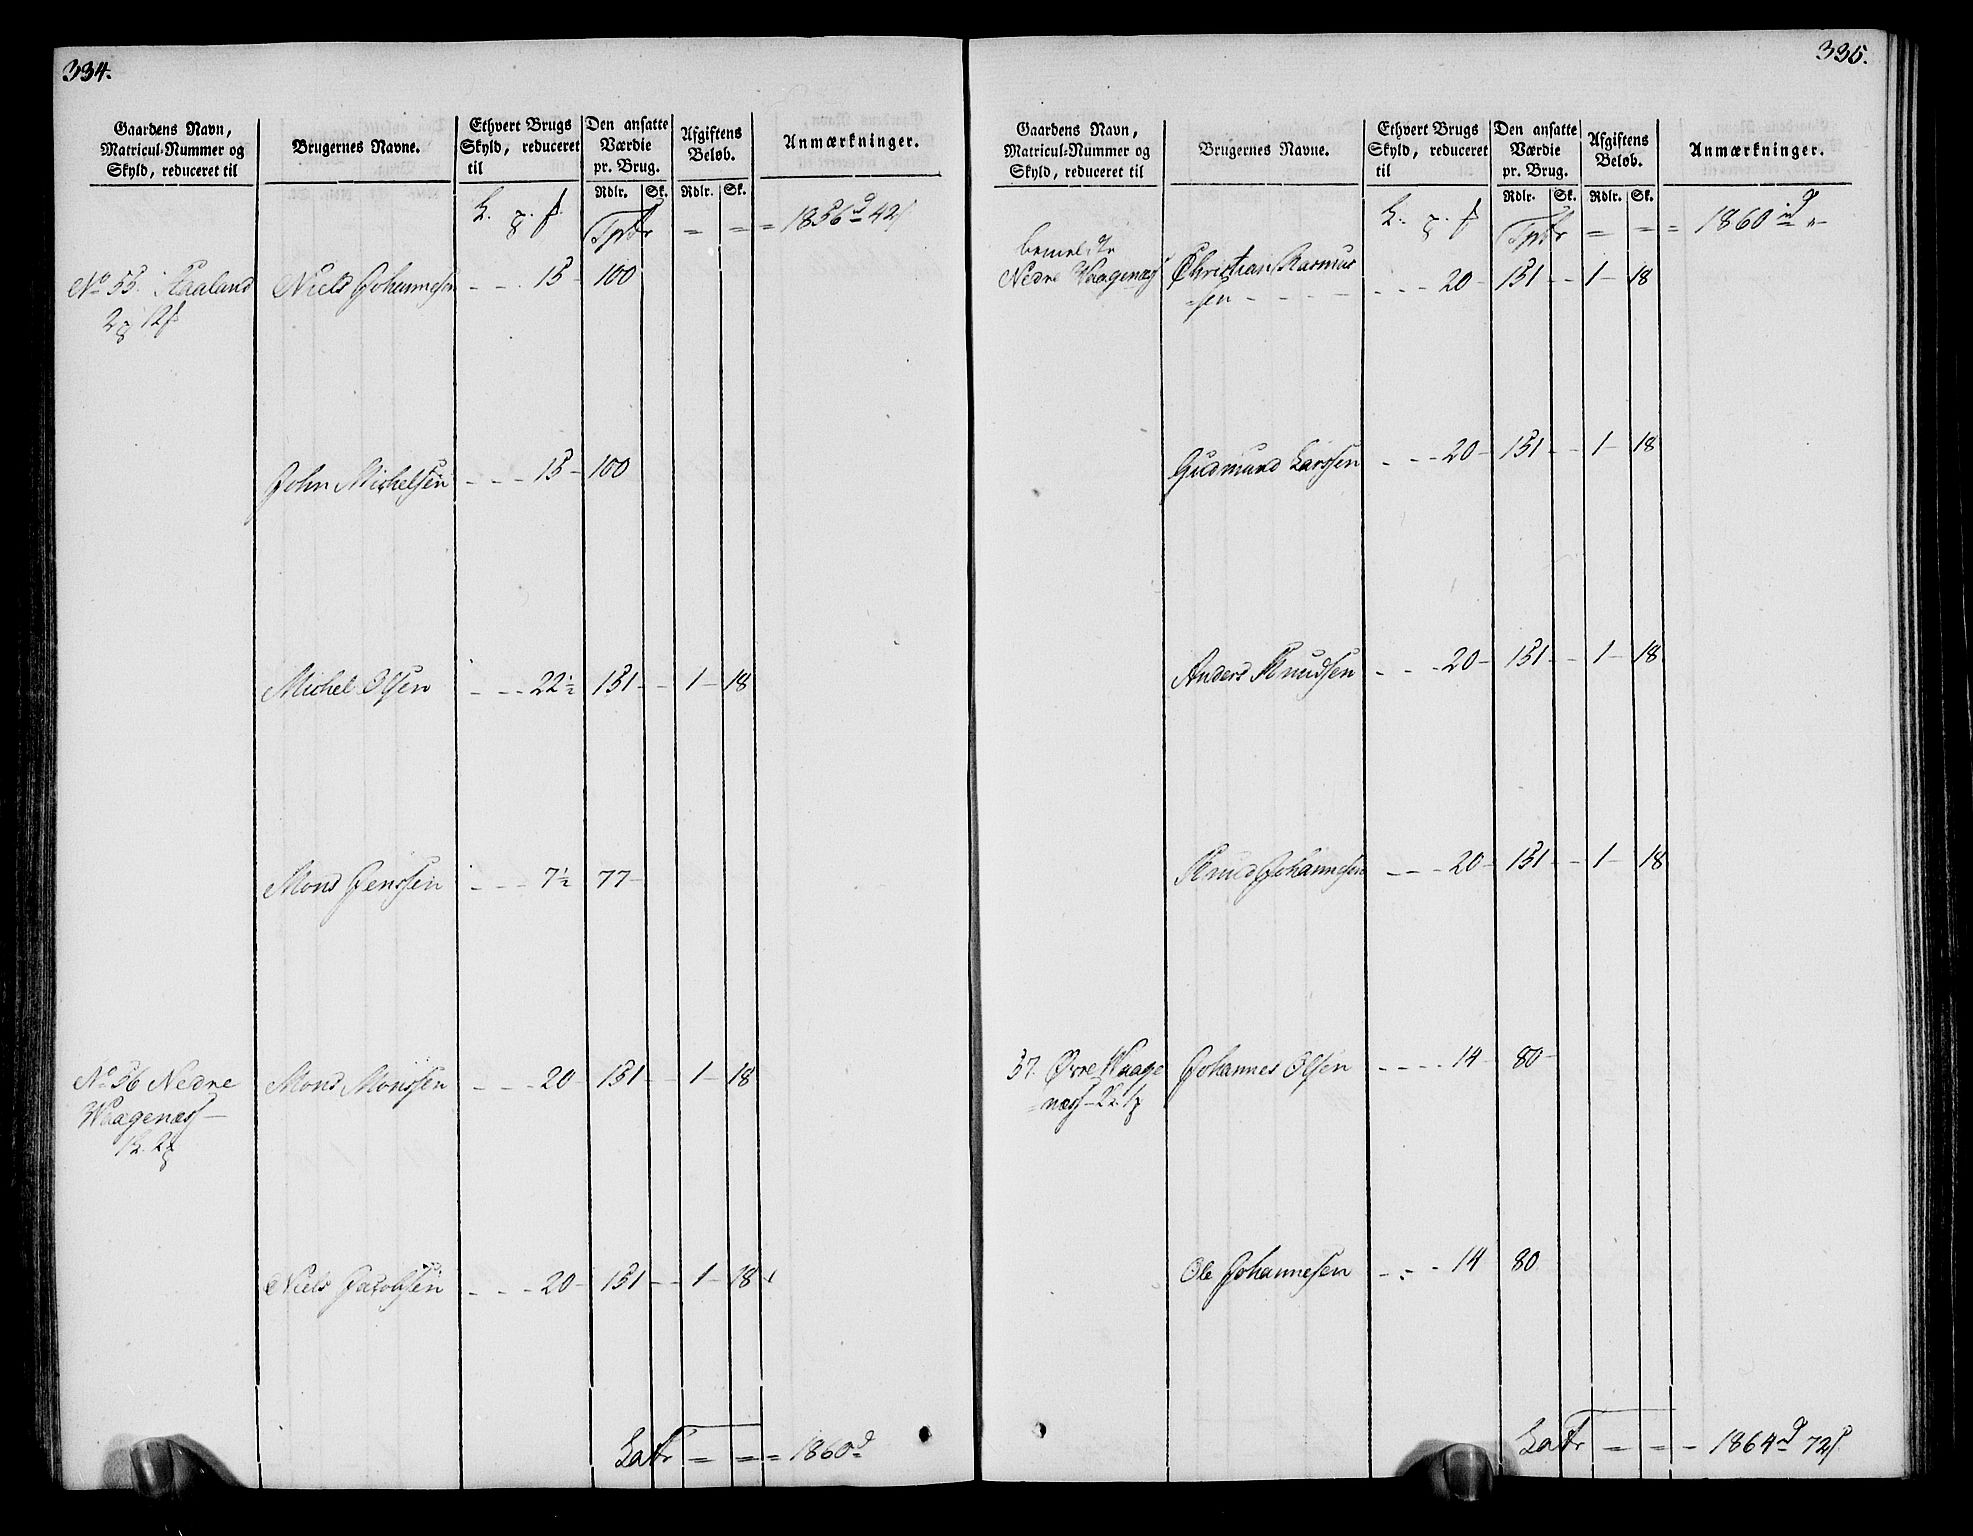 334.
Gaardens Navn,
Matricul-Nummer og
Skyld, reduceret til
Brugernes Navne.
Ethvert Brugs
Skyld, reduceret
til
Den ansatte
Værdie
pr. Brug.
Afgiftens
Beløb.
Anmærkninger.
Rdlr. Sk. Rdlr. Sk.
Tprtr = = = 1856 d 42 s
No 55. Kaaland Niels Johannesen - - - 15 - 100
2 12
John Michelsen - - - 15 - 100
Michel Olsen - - - 22½ 151 - - 1 - 18
Mons Jenssen - - - 7½ 77 -
No 56 Nedre Mons Monssen - - - 20 - 151 - - 1 - 18
Waagenæs -
Niels Jacobsen - - - 20 - 151 - - 1 - 18
Latr = = = 1860 d
335.
Gaardens Navn,
Matricul-Nummer og
Skyld, reduceret til
Brugernes Navne.
Ethvert Brugs
Skyld, reduceret
til
Den ansatte
Værdie
pr. Brug.
Afgiftens
Beløb.
Anmærkninger.
Rdlr. Sk. Rdlr. Sk.
Tprtr = = = 1860
bemeldte
Nedre Waagenæs Christian Rasmus
=sen - - - - - - - 20 - 151 - - 1 - 18
Gudmund Larssen - - - 20 - 151 - - 1 - 18
Anders Knudsen - - - 20 - 151 - - 1 - 18
Knud Johannesen - - - 20 - 151 - - 1 - 18
57. Øvre Waage Johannes Olsen - - - - 14 - 80 -
=næs - 2
Ole Johannesen - - - 14 80
Latr = = - 1864 d 72 s